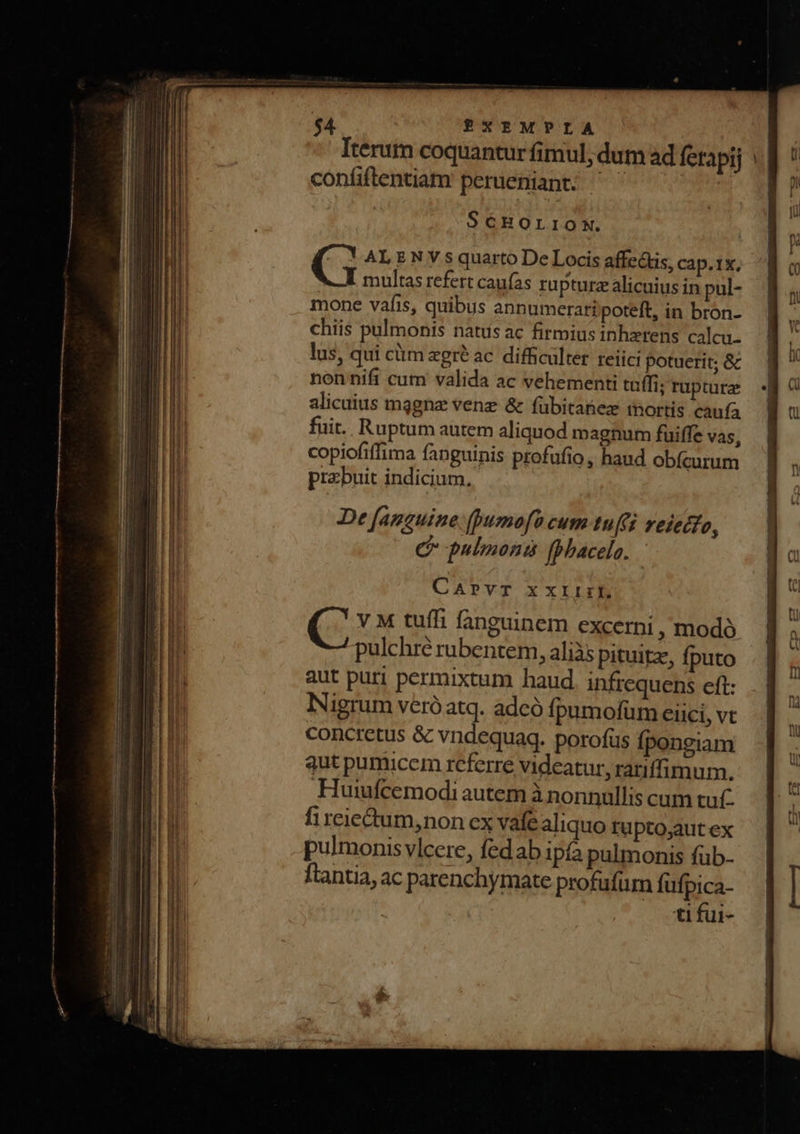 54 EXEMPLA
Iterum coquantur ſimul, dum ad ſerapij
conſiſtentiam perueniant.
SCHOLION.
GALENVS quarto De Locis affectis, cap. IX,
multas refert cauſas rupturæ alicuius in pul-
mone vaſis, quibus annumerari poteſt, in bron-
chiis pulmonis natus ac firmius inhærens calcu-
lus, qui cùm ægrè ac difficulter reiici potuerit; &
non niſi cum valida ac vehementi tuſſi; rupturæ
alicuius magnæ venæ & ſubitaneæ mortis cauſa
fuit. Ruptum autem aliquod magnum fuiſſe vas,
copioſiſſima ſanguinis profuſio, haud obſcurum
præbuit indicium.
De ſanguine ſpumoſo cum tuſſi reiecto,
& pulmonis ſphacelo.
CAPVT XXIIII.
CVM tuſſi ſanguinem excerni, modò
pulchrè rubentem, aliàs pituitæ, ſputo
aut puri permixtum haud infrequens eſt:
Nigrum verò atq. adeò ſpumoſum eiici, vt
concretus & vndequaq. poroſus ſpongiam
aut pumicem referre videatur, rariſſimum.
Huiuſcemodi autem à nonnullis cum tuſ-
ſi reiectum, non ex vaſe aliquo rupto, aut ex
pulmonis vlcere, ſed ab ipſa pulmonis ſub-
ſtantia, ac parenchymate profuſum ſuſpica-
ti fui-